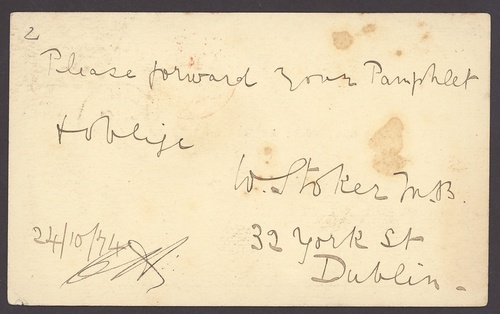 2
Please forward your Pamphlet
& oblige
W. Stoker M.B.
32 York St
Dublin.
24/10/74